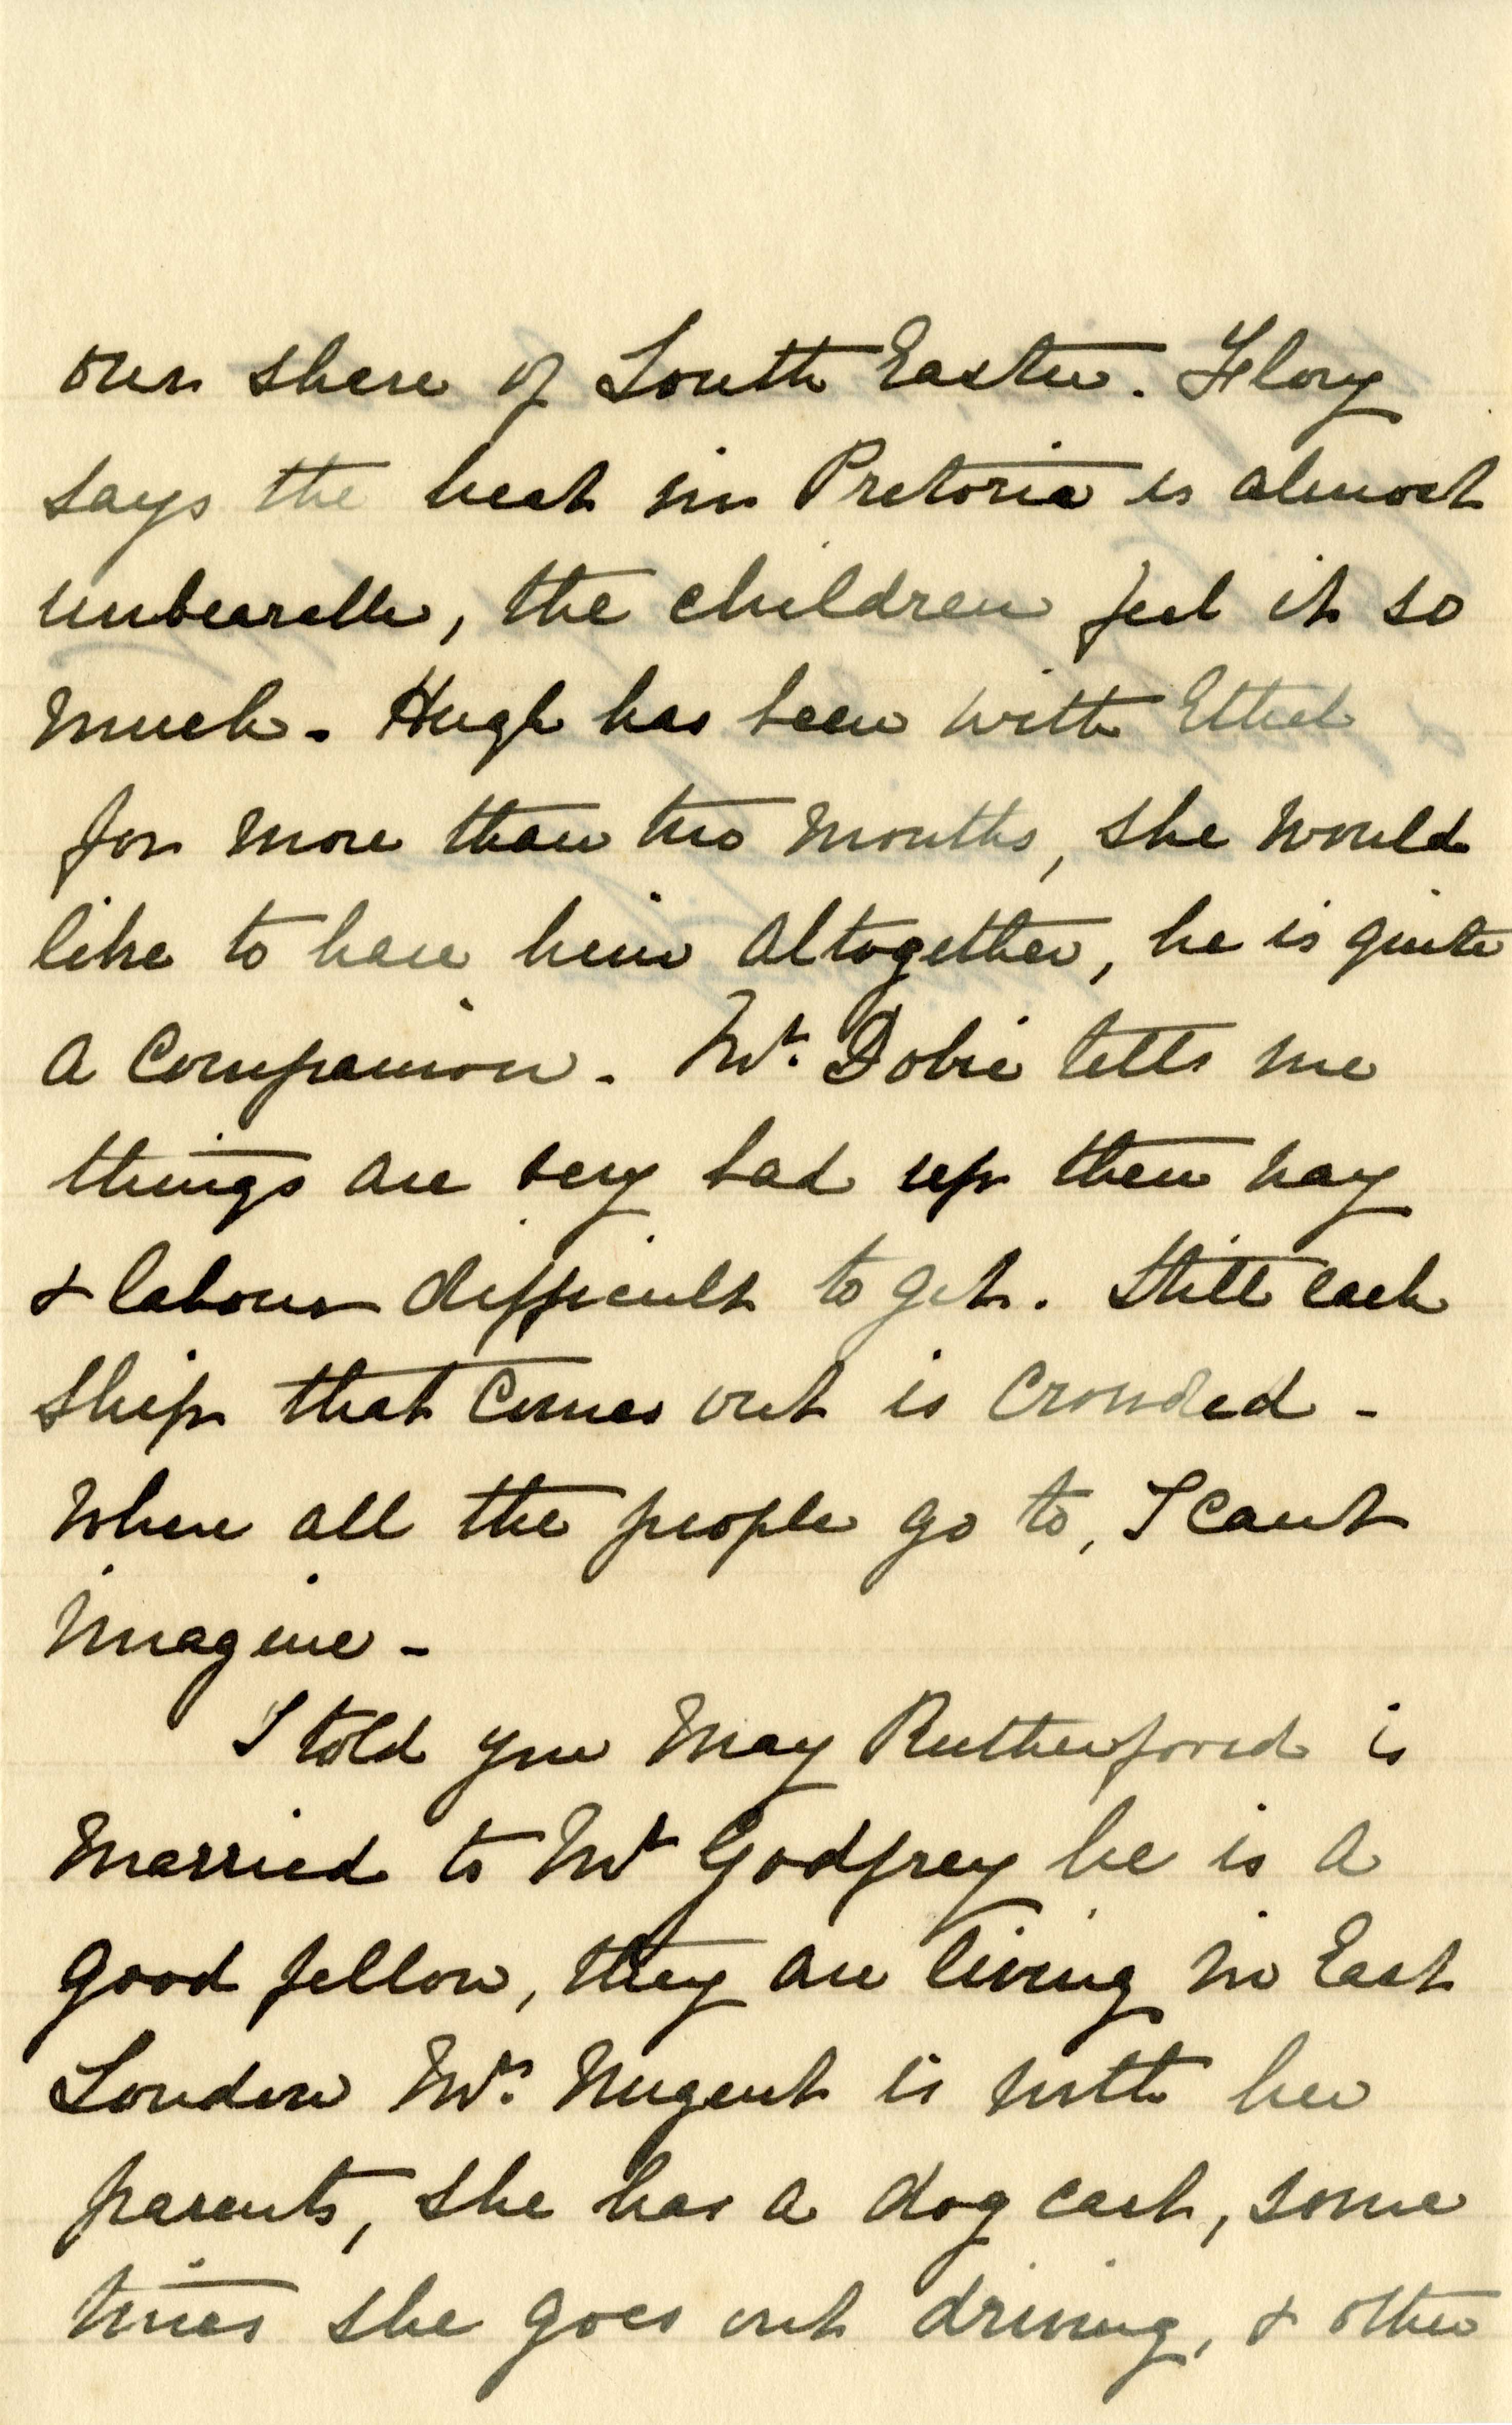 our share of South Easter. Flory
says the heat in Pretoria is almost
unbearable, the children feel it so
much - Hugh has been with Ethel
for more than two months, she would
like to have him altogether, he is quite
a companion - Mr. Dobie tells me
things are very bad up there way
& labour difficult to get. Still each
ship that comes out is crowded -
Where all the people go to, I cant
imagine -
I told you May Rutherford is
married to Mr Godfrey he is a
good fellow, they are living in East
London Mrs. Nugent is with her
parents, she has a dog cart, some
times she goes out driving, & other